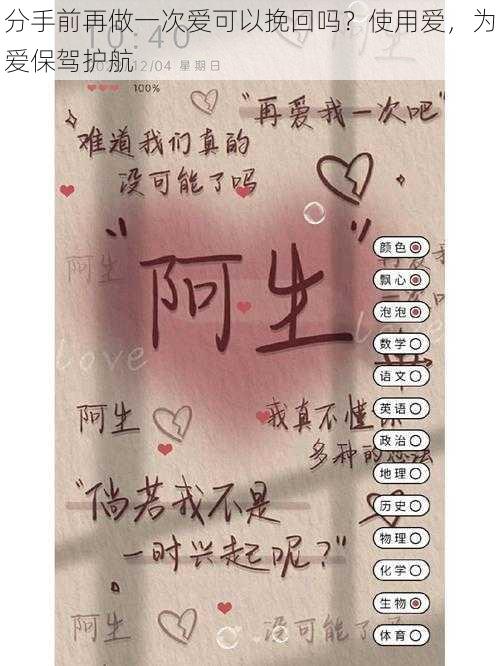 分手前再做一次爱可以挽回吗？使用爱，为
爱保驾护航
10:40
12/04 星期日
100%
“再爱我一次吧”
难道我们真的
没可能了吗
“阿生”
颜色
飘心
泡泡
数学
语文
英语
政治
地理
历史
物理
化学
生物
体育
阿生
love
love
阿生
我真不懂你
多种的想法
“倘若我不是
一时兴起呢？”
阿生
没可能了